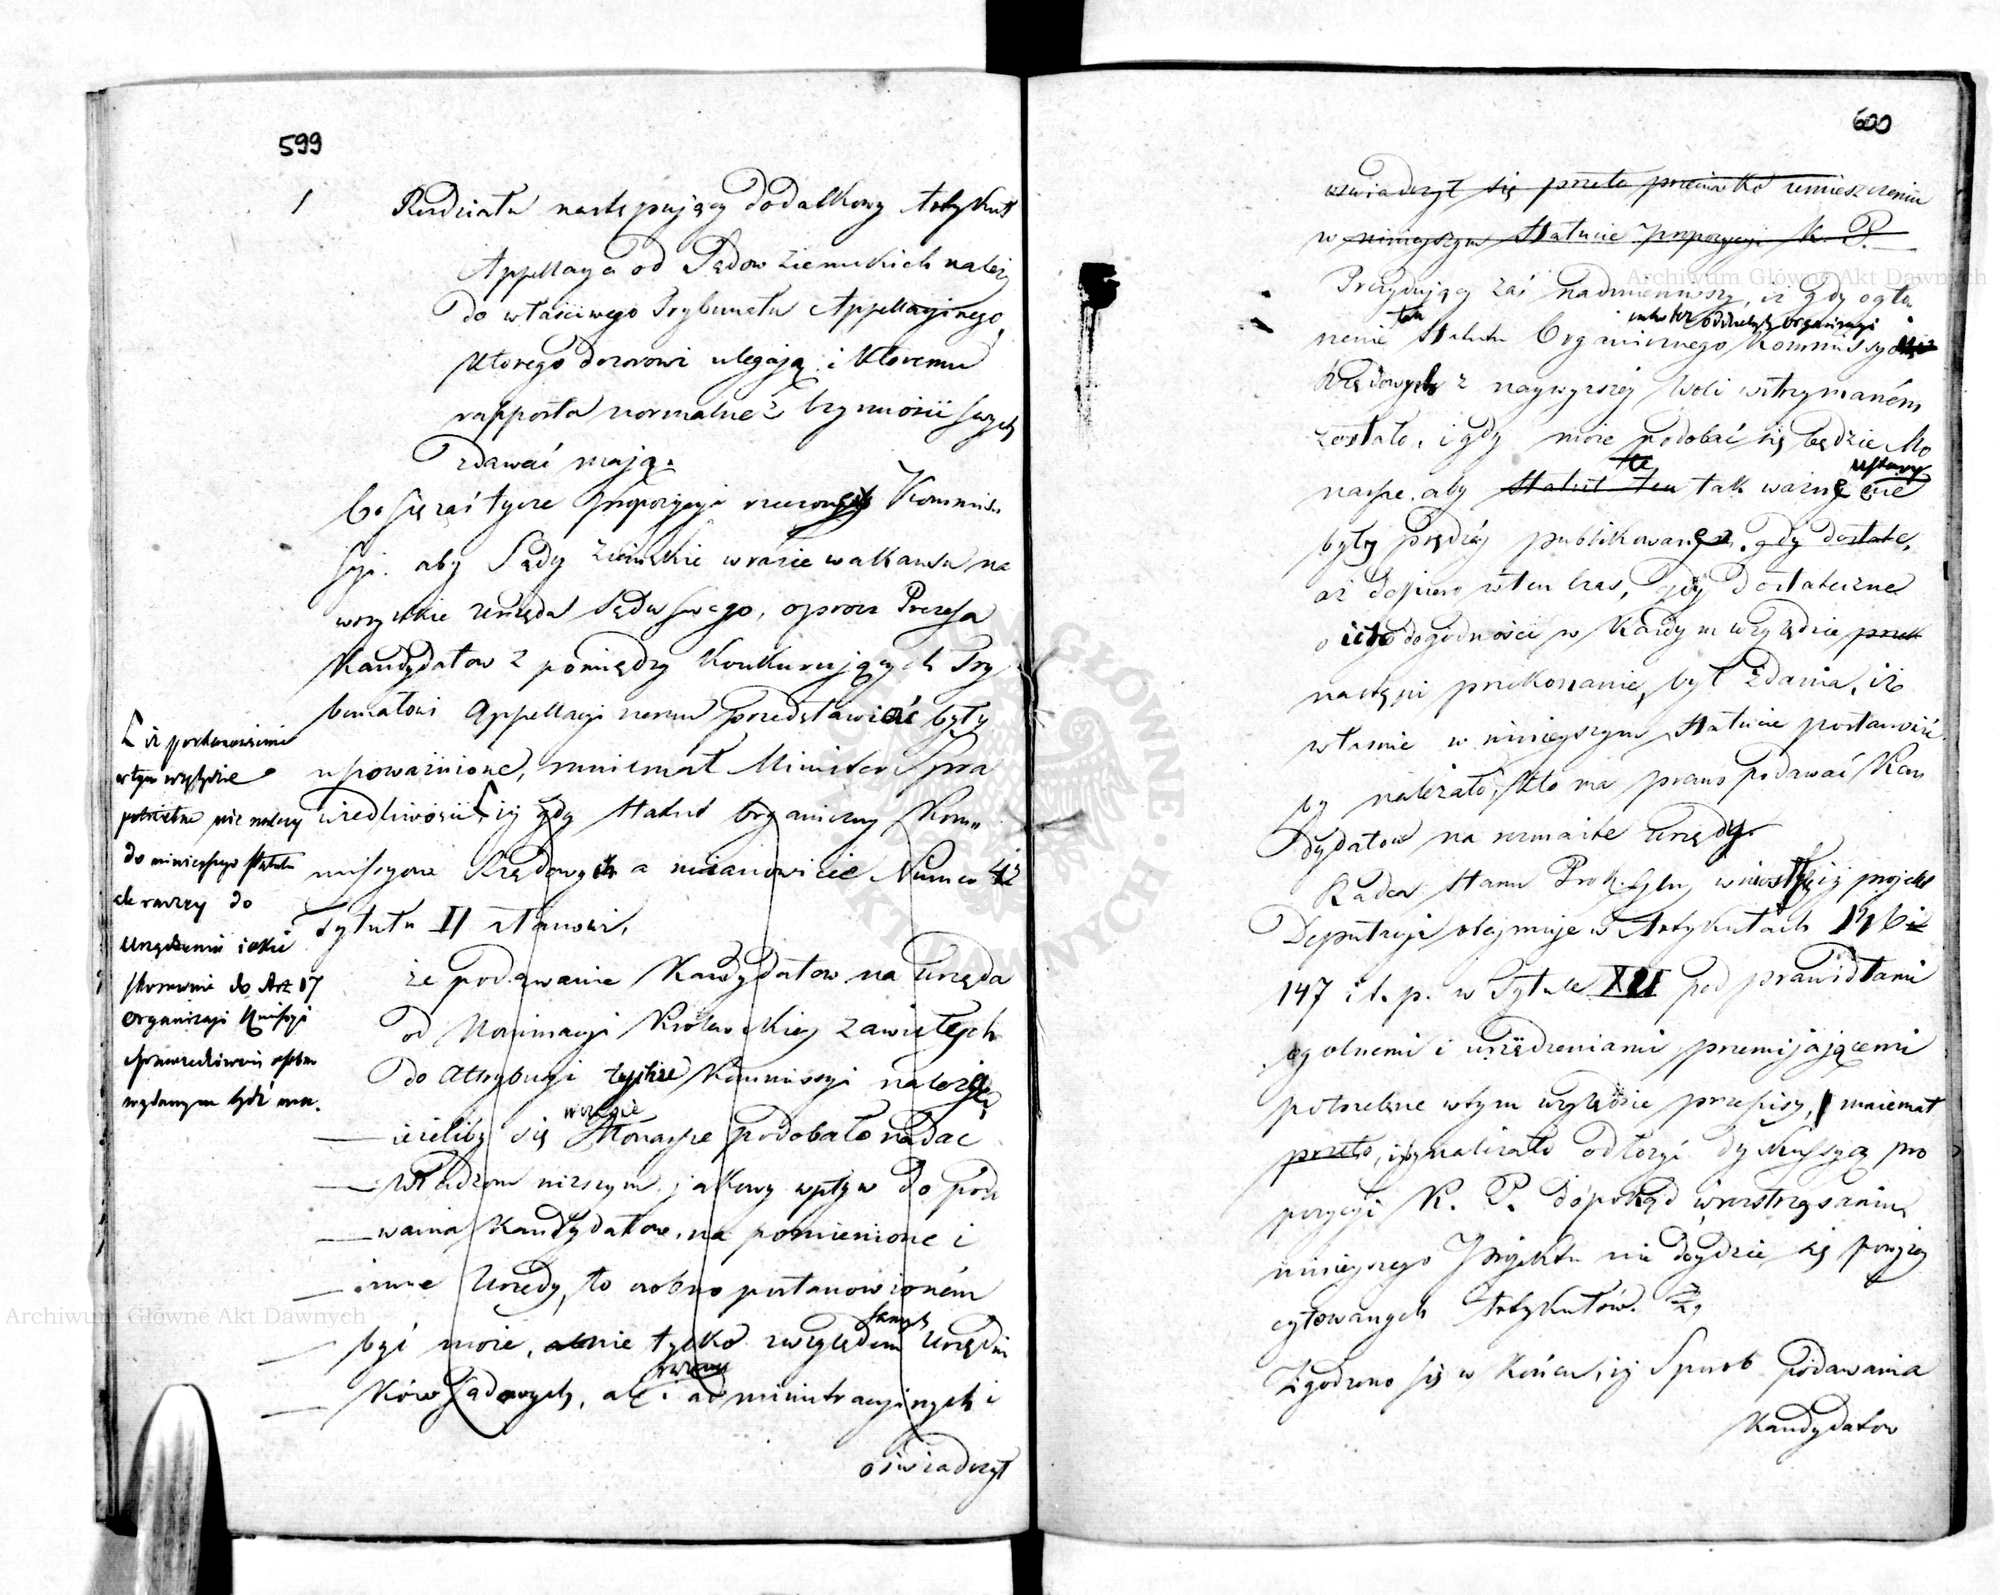 599
1
Rozdziału następujący dodatkowy Artykuł
Appellacya od Sądow Ziemskich należy
do właściwego Trybunału Appellacyinego,
którego dozorowi ulegają i któremu
rapporta normalne z czynności swych
zdawać mają.
Co się zaś tycze propozycyi rzeczonéy Kommis-
syi. aby Sądy Ziemskie w razie wakansu na
wszystkie urzęda Sądu swego, oprocz Prezesa
Kandydatow z pomiędzy konkurujących Try
bunałowi Appellacyinemu przedstawiać były
upoważnione, mniemał Minister Spra
wiedliwości, iż gdy Statut organiczny Kom„
missyow Rządowych a mianowicie Numer 42
Tytułu II stanowi,
że podawanie Kandydatow na urzęda
od Nominacyi Królewskiey zawisłych
do Attrybucyi teyże Kommissyi należy
ieżeliby się Monarsze podobało nadać
władzom niższym jakowy wpływ do poda
wania Kandydatow, na pomienione i
inne Urzędy, to osobno postanowioném
być może, nie tylko względem samych Urzędni
ków sądowych, ale i administracyinych i
oświadczył
iż postanowienie
w tym względzie
potrzebne nie należy
do ninieyszego Statutu
ale raczey do
urządzenia iakie
stosownie do Art 17
Organizacyi Kmissyi
Sprawiedliwości osobno
wydanym być ma.
600
oświadczył się przeto przeciwko umieszczeniu
w ninieyszym Statucie propozycyi K. P.
Prezyduiący zaś nadmieniwszy, iż gdy ogło
szenie Statutu Organicznego Kommissyi
Rządowych z naywyższéy woli wstrzymaném
zostało, i gdy może podobać się będzie Mo
narsze, aby Statut ten tak ważne ustawy nie
były prędzéy publikowane, gdy dostate,
aż dopiero w ten czas, gdy dostateczne
o ich dogodności w każdym względzie
nastąpi przekonanie, był zdania, iż
właśnie w ninieyszym Statucie postanowić
by należało, kto ma prawo podawać Kan
dydatow na rozmaite urzędy.
Radca Stanu Prok. Glny wniosł iż projekt
Deputacyi obejmuje w Artykułach 146
147 i t. p. w Tytule XII pod prawidłami
ogolnemi i urządzeniami przemijającemi
potrzebne w tym względzie przepisy, mniemał
przeto, iż należało odłożyć dyskussyą pro
pozycyi K. P. dopokąd w roztrząsaniu
ninieyszego Projektu nie doydzie się powyżey
cytowanych Artykułów.
Zgodzono się w końcu, iż Sposob podawania
Kandydatow
Archiwum Główne Akt Dawnych
Archiwum Główne Akt Dawnych